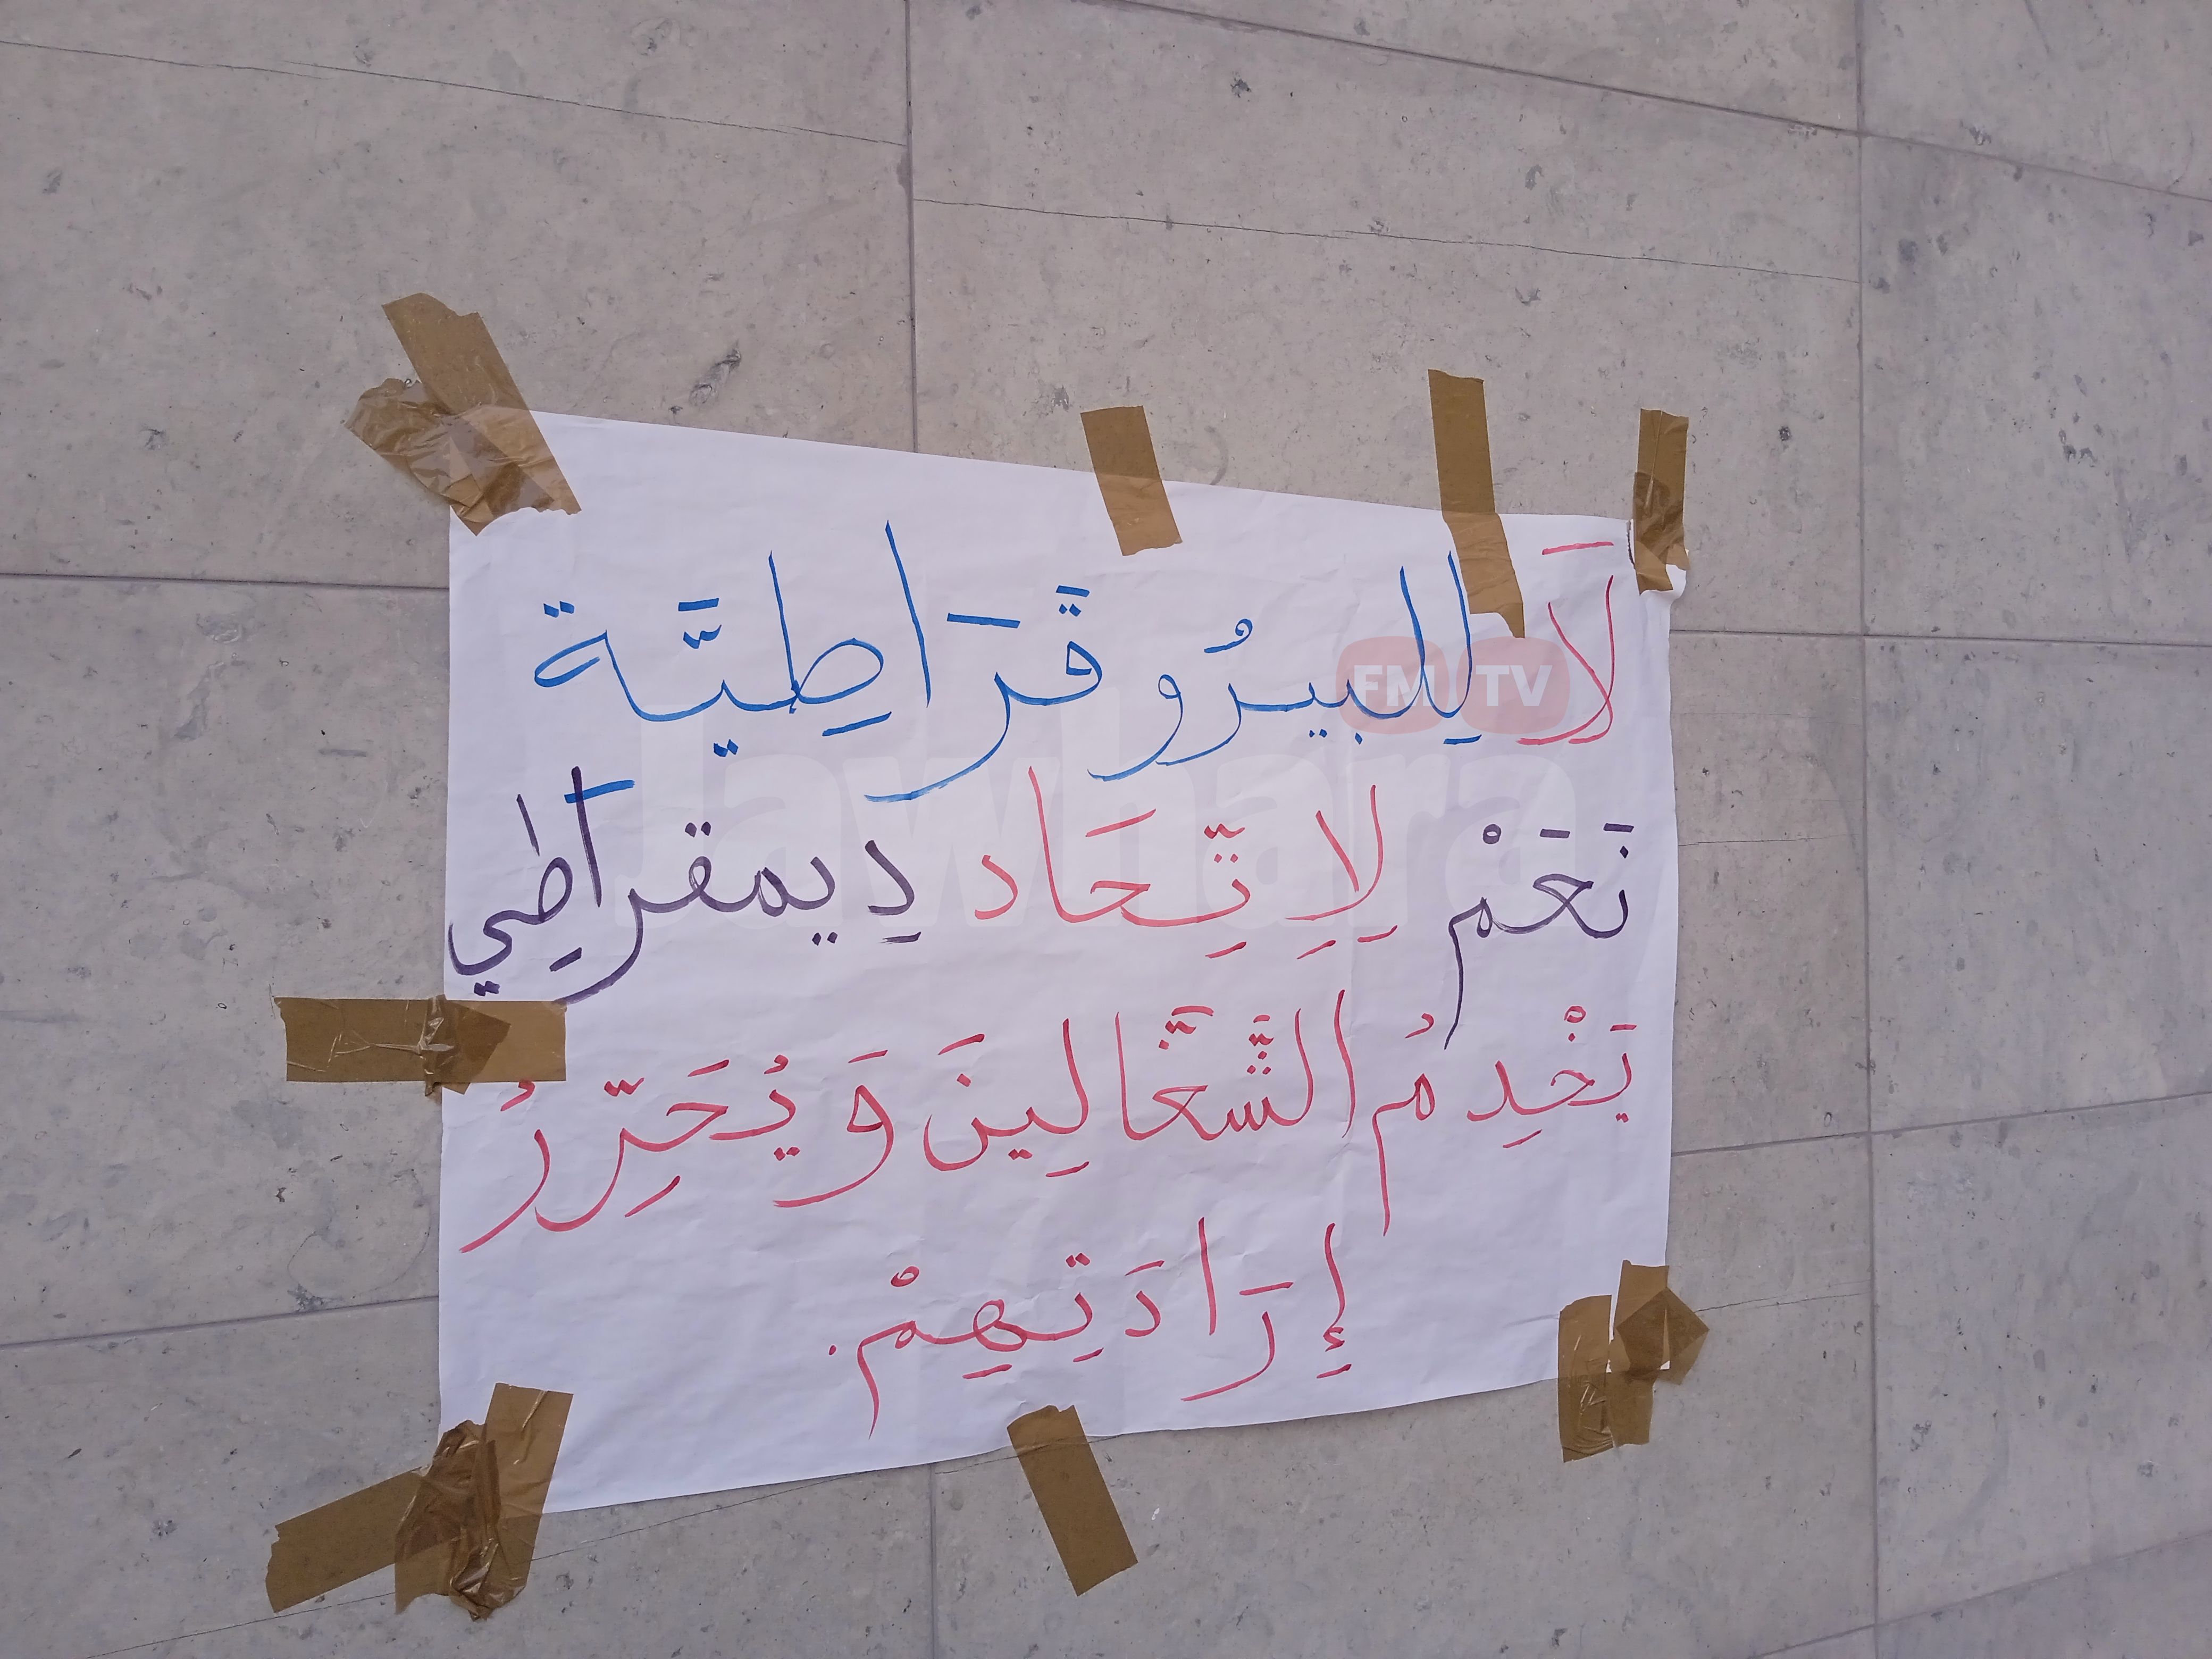 لَا لِلبيرُوقَرَاطِيَّة
نَعَمْ لِاِتِّحَاد دِيمقراَطِي
يَخْدِمُ الشَّغَّالِينَ وَ يُحَرِّرُ
إِرَادَتِهِمْ.
FM TV
Jawhara